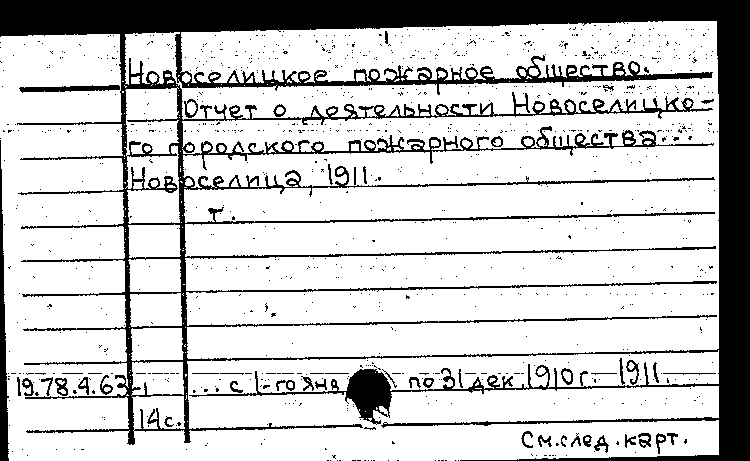 Новоселицкое пожарное общество.
Отчет о деятельности Новоселицко-
го городского пожарного общества...
Новоселица, 1911.
т.
19.78.4.63-1 ... с 1-го янв по 31 дек. 1910 г. 1911.
14 с.
См. след. карт.